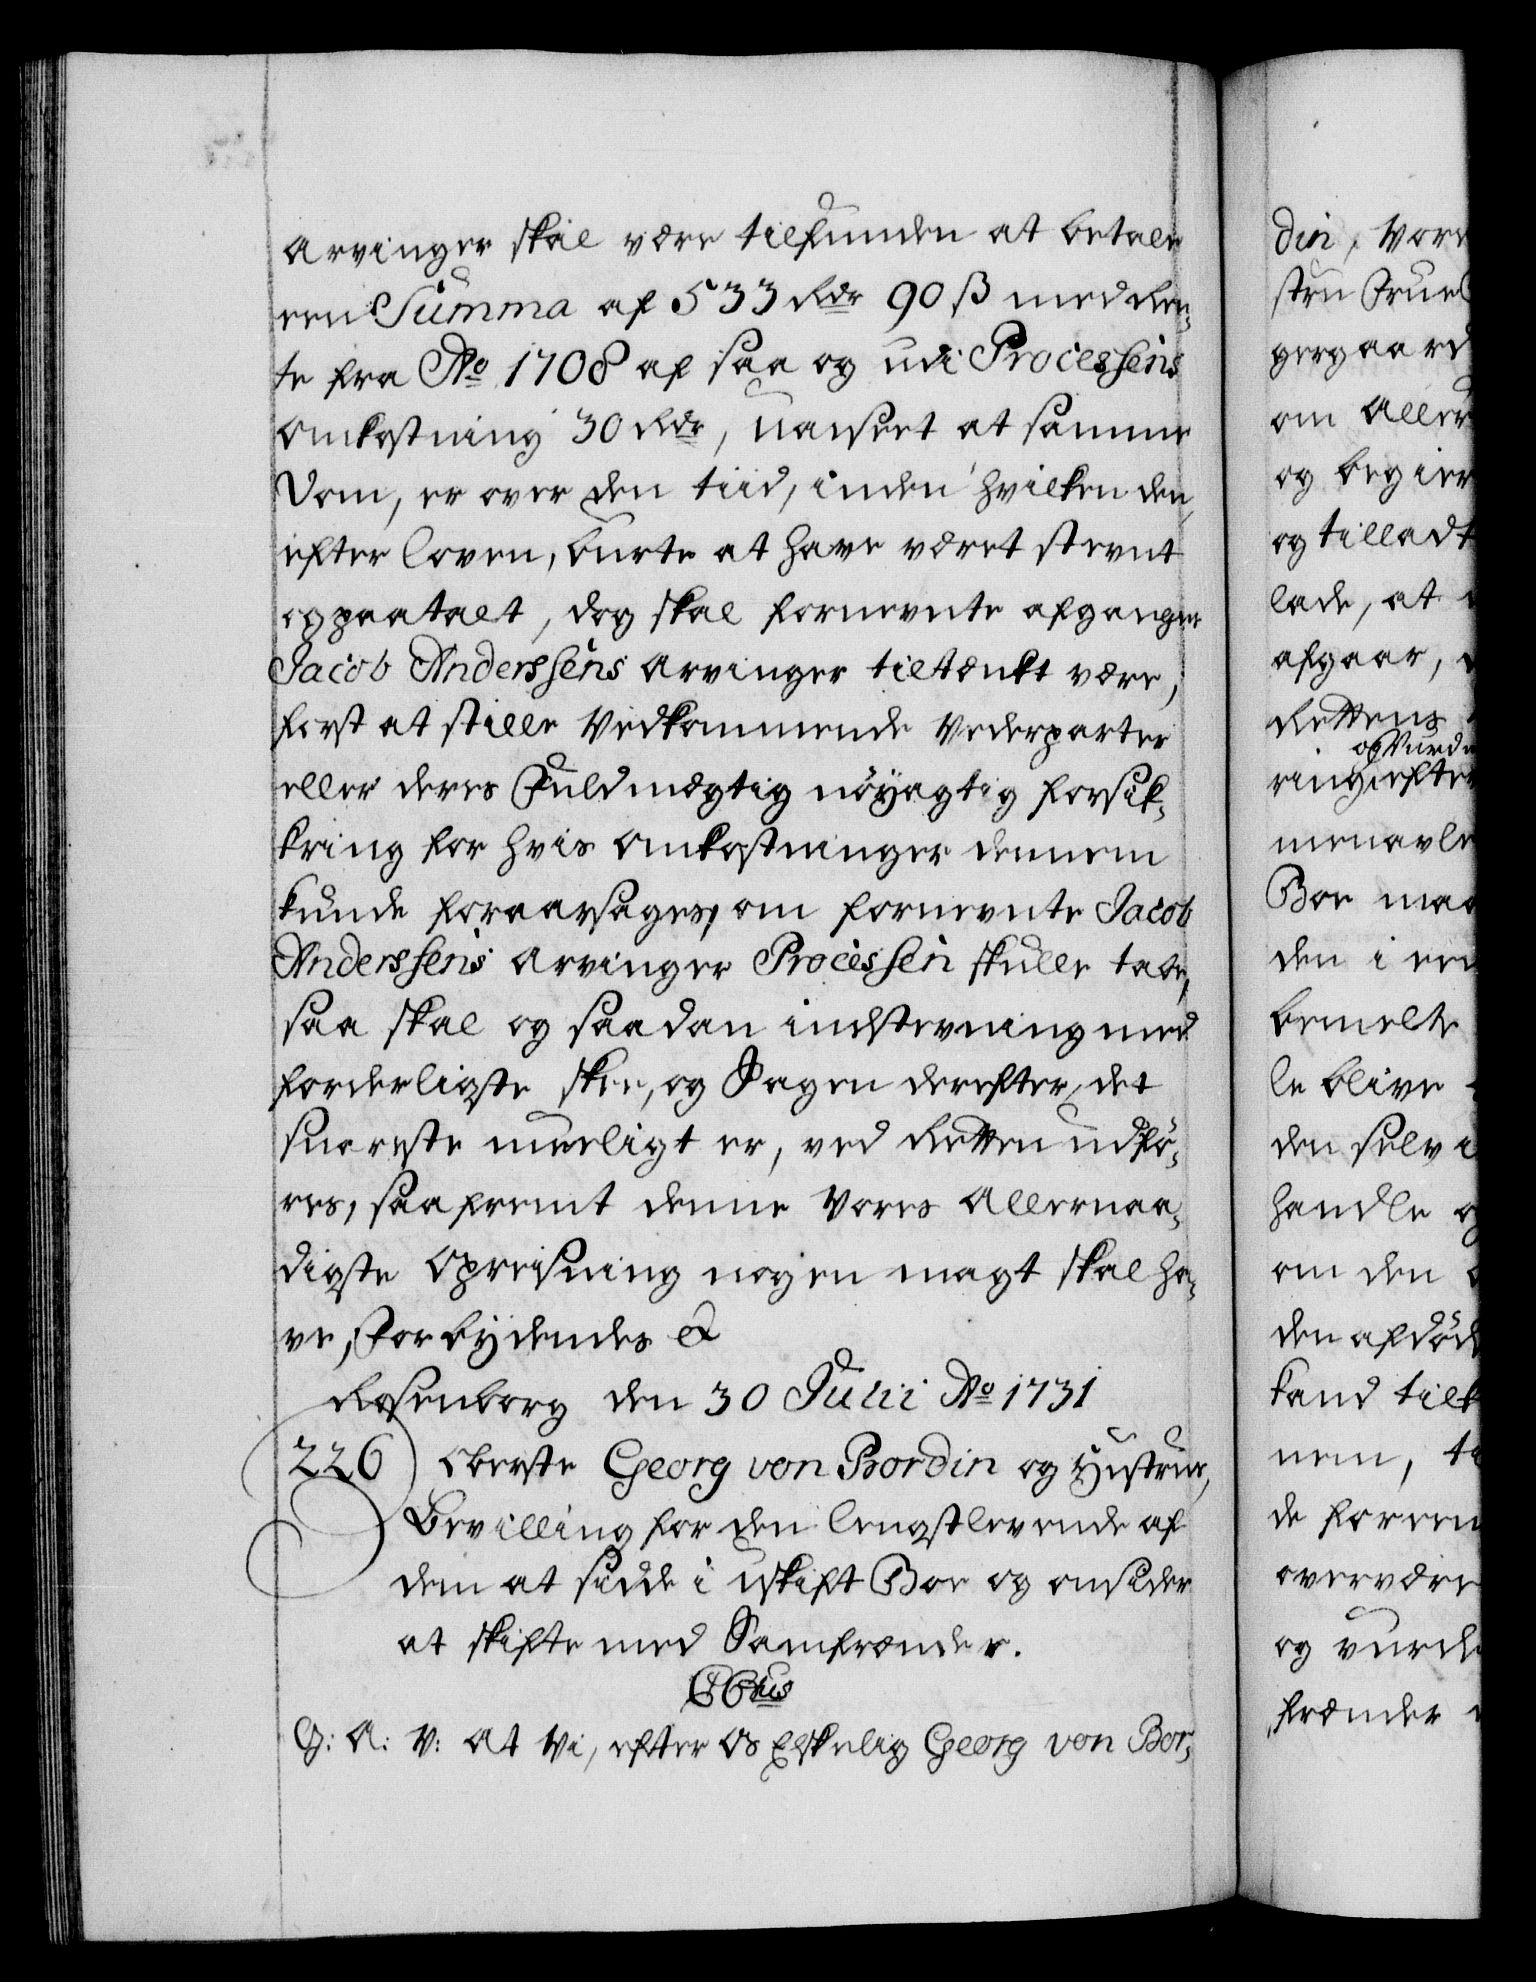 Arvinger skal være tilfunden at betale
een Summa af 533 Rdr 90 ß med Ren¬
te fra Ao 1708 af saa og udi Processens
Omkostning 30 Rdr, uanseet at samme
Dom, er over den tiid, inden hvilken den,
efter Loven, burte at have været stevnt
og paatalt, dog skal fornevnte afgangne
Jacob Anderssens Arvinger tiltænkt være,
først at stille Vedkommende Vederparter
eller deres Fuldmægtig nöyagtig forsik¬
kring for hvis Omkostninger dennem
kunde foraarsages, om fornevnte Jacob
Anderssens Arvinger Processen skulle tabe,
saa skal og saadan indstevning med
forderligste skee, og Sagen derefter, det
snareste mueligt er, ved Retten udfö¬
res, saafremt denne Vores Allernaa¬
digste Opreisning nogen magt skal ha¬
ve, Forbydendes &
Rosenborg den 30 Julii Ao 1731
226 Oberste Georg von Bordin og Hustrue,
Bevilling for den Lengstlevende af
dem at sidde i uskift Boe og omsider
at skifte med Samfrænder.
G: A: V: At Vi, efter Os Elskelig Georg von Bor¬
din, Vore
stru Frue
gergaard
om Aller
og begier
og tilladt
lade, at
afgaar,
Rettens
og Vurde
ring efter
menavle
Boe maa
den i
bemelte
le blive
den selv
handle
om den
den afdöd
kand tilk
nem,
de foreen
overvære
og vurde
frænder